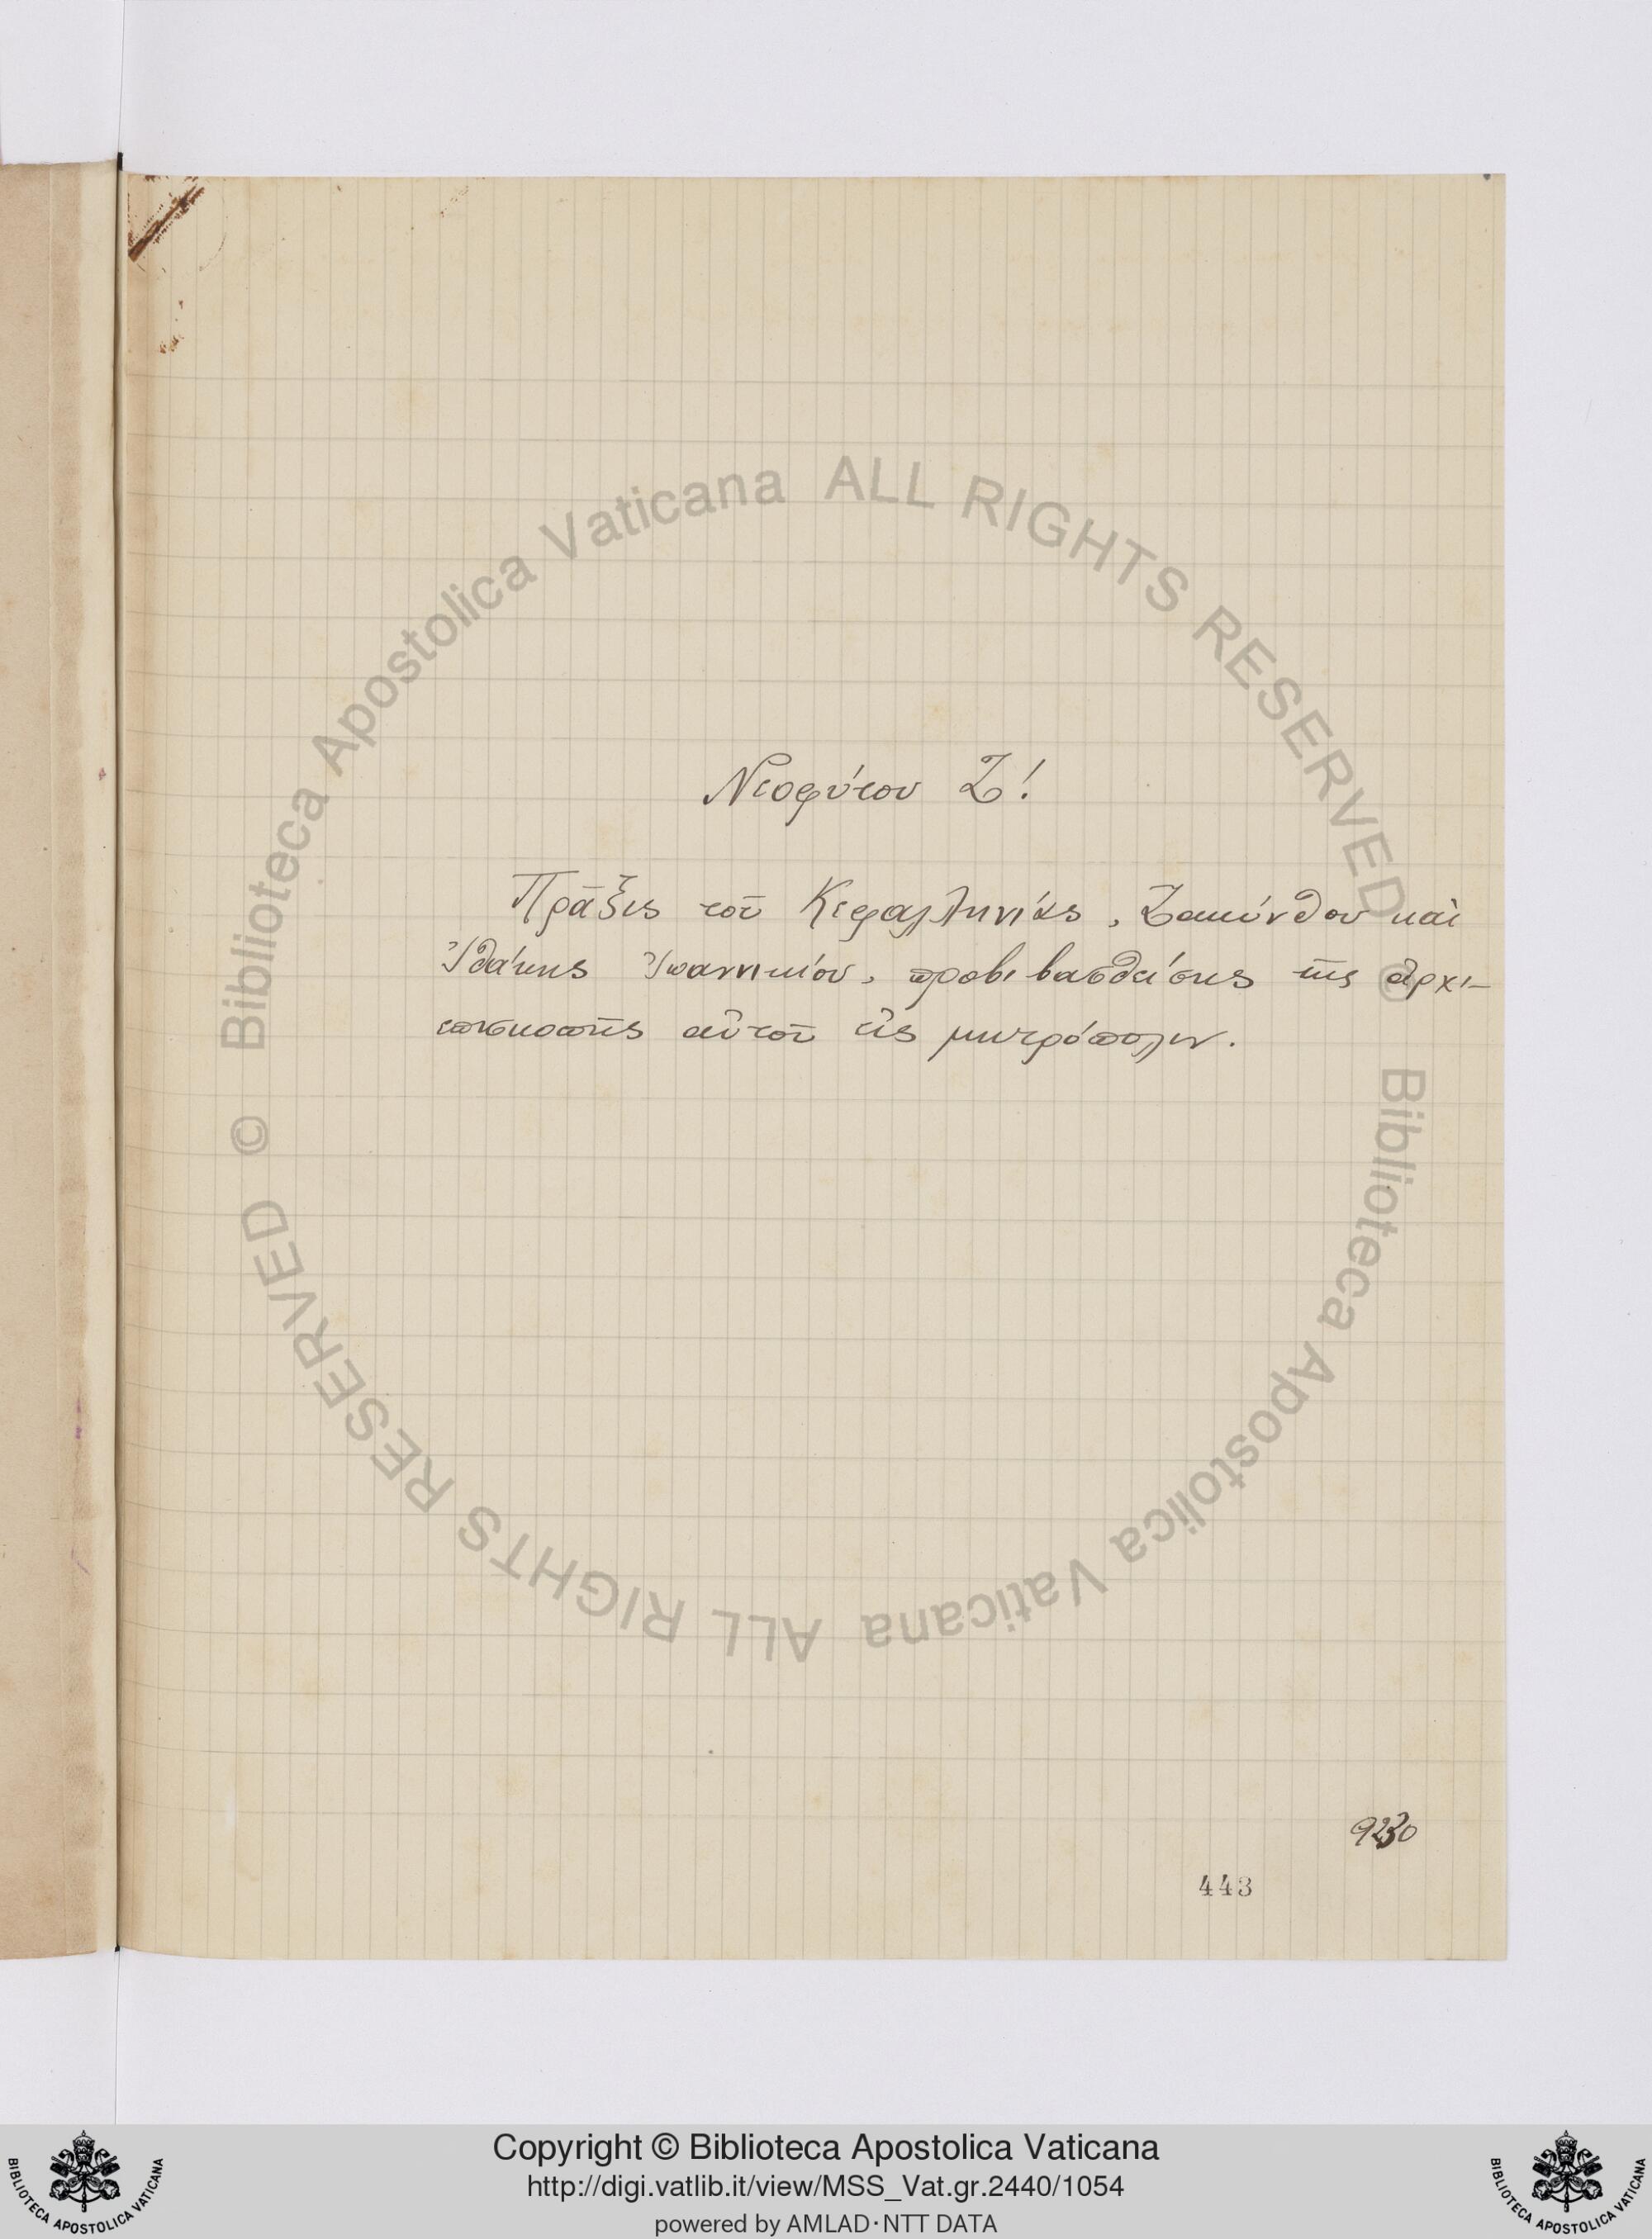 Νεοφύτου Ζ!
Πρᾶξις τοῦ Κεφαλληνίας, Ζακύνθου καὶ
Ἰθάκης Ἰωαννικίου, προβιβασθείσης τῆς ἀρχι-
επισκοπῆς αὐτοῦ εἰς μητρόπολιν.
9230
443
© Biblioteca Apostolica Vaticana ALL RIGHTS RESERVED
© Biblioteca Apostolica Vaticana ALL RIGHTS RESERVED
BIBLIOTECA APOSTOLICA VATICANA
Copyright © Biblioteca Apostolica Vaticana
http://digi.vatlib.it/view/MSS_Vat.gr.2440/1054
powered by AMLAD·NTT DATA
BIBLIOTECA APOSTOLICA VATICANA